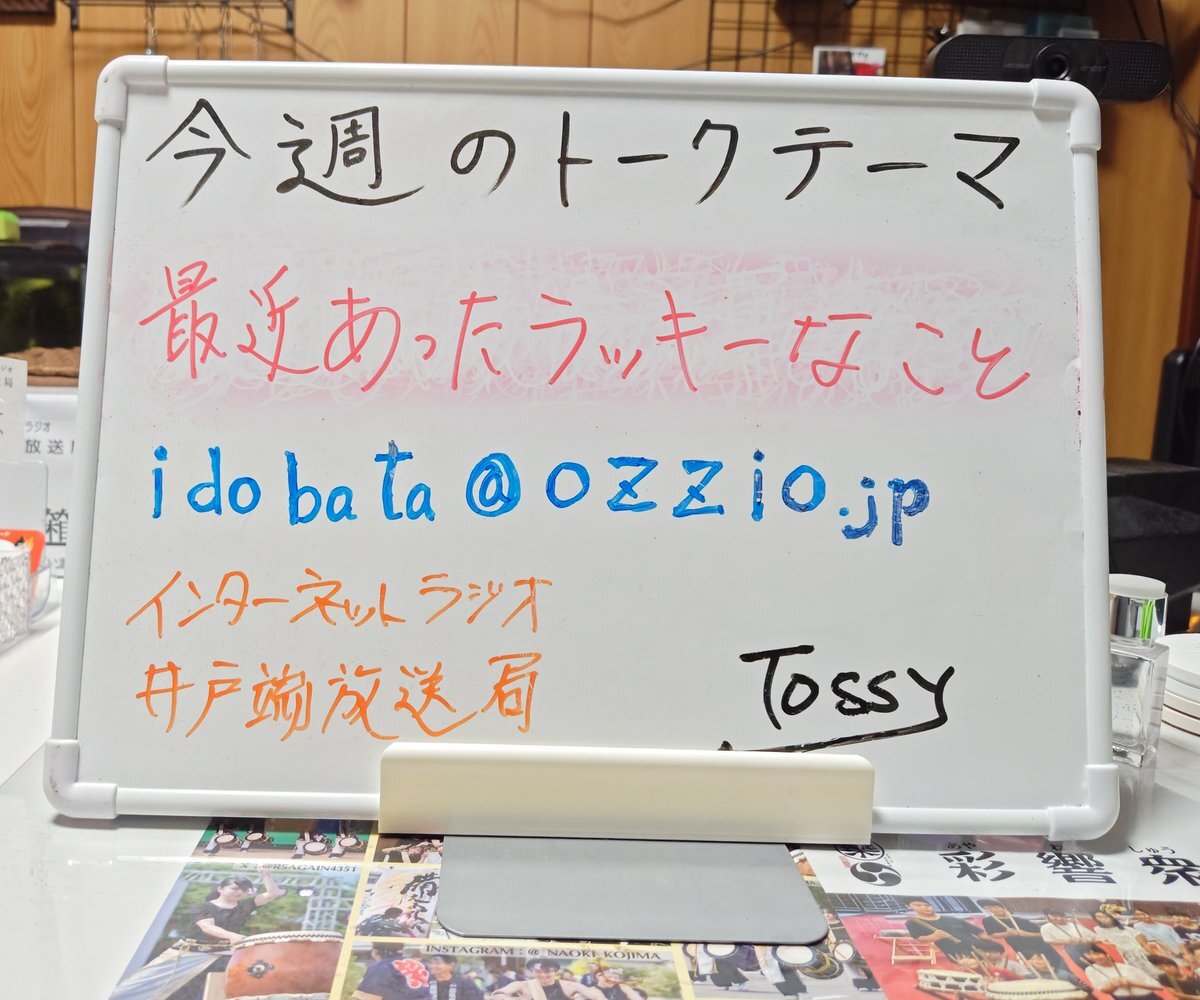 今週のトークテーマ
最近あったラッキーなこと
idobata@ozzio.jp
インターネットラジオ
井戸端放送局
Tossy
X：@RSAGAIN4351
INSTAGRAM：@_NAOKI_KOJIMA_
あや きょう しゅう
彩響衆